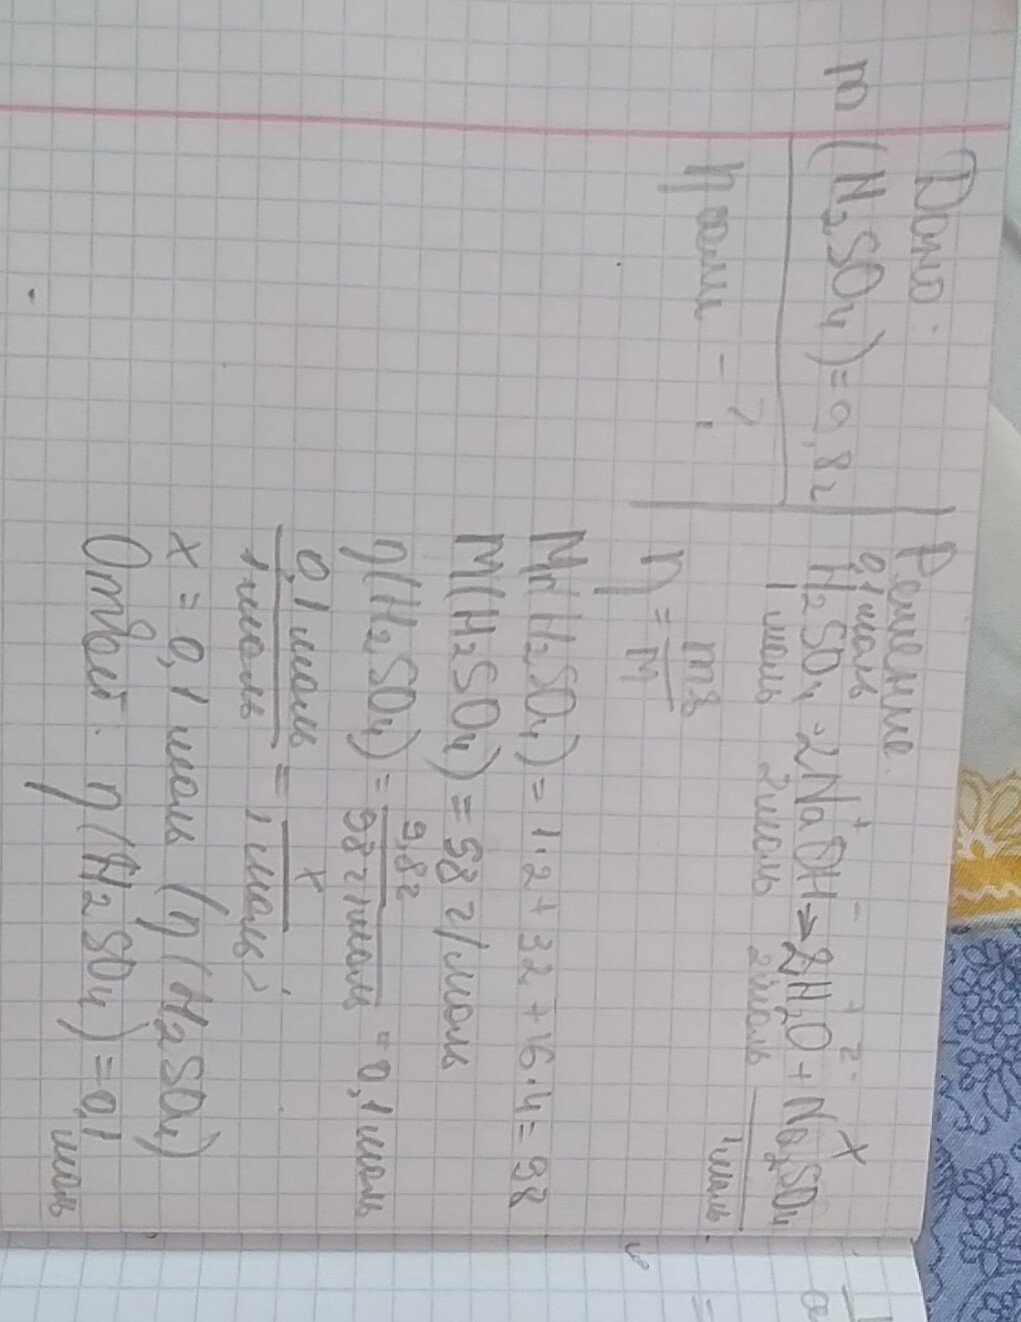 Дано:
m (H₂SO₄) = 9,8г
η соли - ?
Решение.
0,1 моль x
H₂SO₄ + 2NaOH → 2H₂O + Na₂SO₄
1 моль 2 моль 2 моль 1 моль
η = m в / M
Mr(H₂SO₄) = 1·2 + 32 + 16·4 = 98
M(H₂SO₄) = 98 г/моль
η(H₂SO₄) = 9,8г / 98 г/моль = 0,1 моль
0,1 моль / 1 моль = x / 1 моль ;
x = 0,1 моль (η (H₂SO₄)
Ответ: η (H₂SO₄) = 0,1
моль